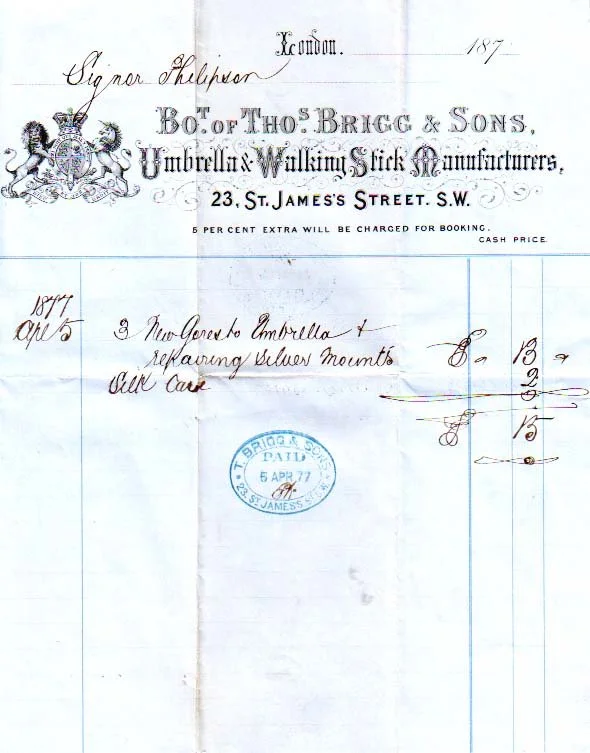 London. 187
Signor Philipson
BOT. OF THOS. BRIGG & SONS,
Umbrella & Walking Stick Manufacturers,
23, ST. JAMES'S STREET. S.W.
5 PER CENT EXTRA WILL BE CHARGED FOR BOOKING.
CASH PRICE.
1877
Apl 5 3 New Gores to Umbrella &
repairing Silver Mounts £ " 13 "
Silk Case 2
£ 15
T. BRIGG & SONS
PAID
5 APR. 77
23, ST JAMES'S ST. S.W.